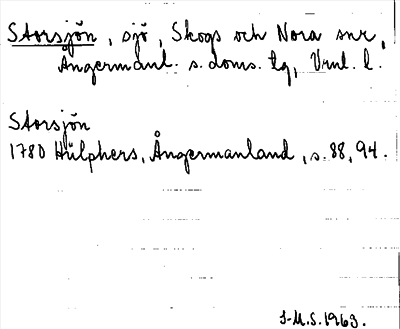 Storsjön, sjö, Skogs och Nora snr,
Ångermanl. s. doms. tg, Vrnl. l.
Storsjön
1780 Hülphers, Ångermanland, s. 88, 94.
I-M.S. 1963.